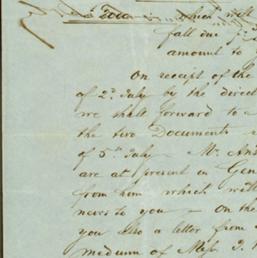 which will
fall due
amount to
On receipt of the
of 2d July by the direct
we shall forward to
the two Documents
of 5th July Mr. Ans
are at present in Gen
from him which with
news to you — on the
you also a letter from
medium of Miss. J.